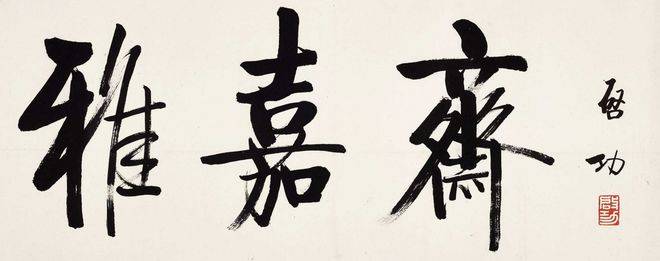 雅嘉齋
啓功
啟功